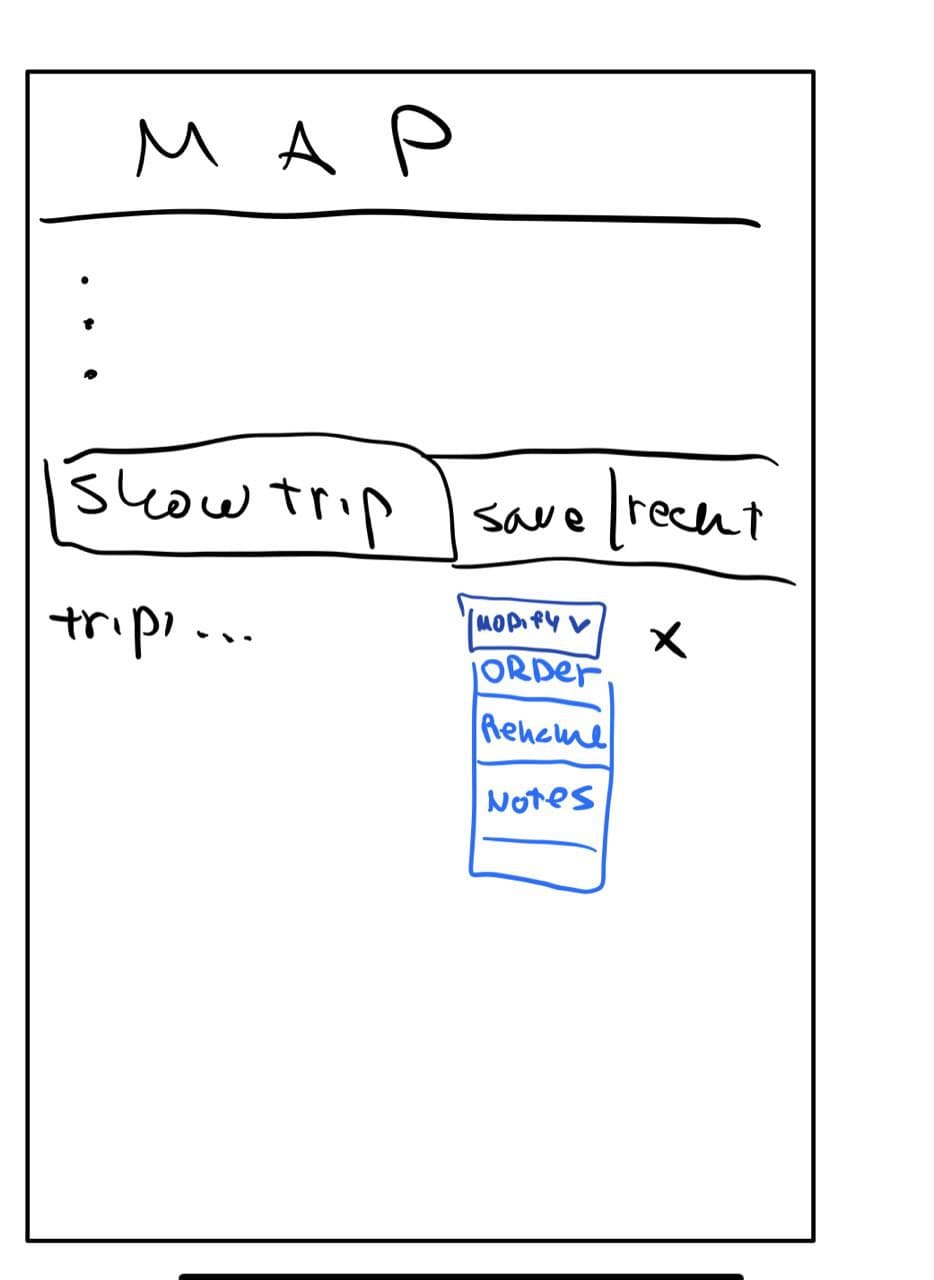 MAP
show trip save recent
trip, ... Modify x
Order
Rename
Notes